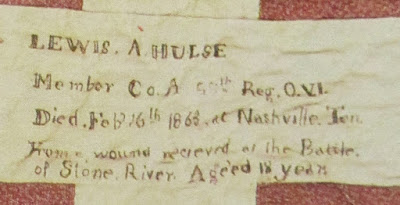 LEWIS. A HULSE
Member Co. A Reg. O.V.I.
Died. Feb 16th 1863. at Nashville Ten
From a wound recieved at the Battle.
of Stone. River. Aged 18 years